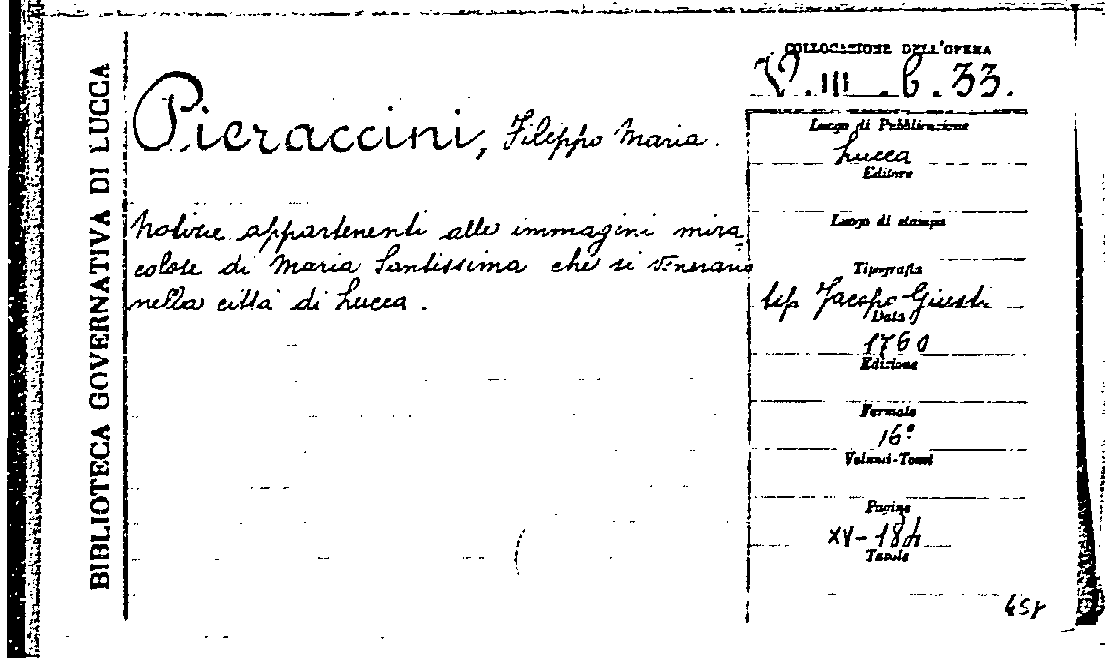 BIBLIOTECA GOVERNATIVA DI LUCCA
Pieraccini, Filippo Maria.
Notizie appartenenti alle immagini mira
colose di Maria Santissima che si venerano
nella città di Lucca.
COLLOCAZIONE DELL'OPERA
V. III. b. 33.
Luogo di Pubblicazione
Lucca
Editore
Luogo di stampa
Tipografia
tip Jacopo Giusti
Data
1760
Edizione
Formato
16°
Volumi-Tomi
Pagine
XV-184
Tavole